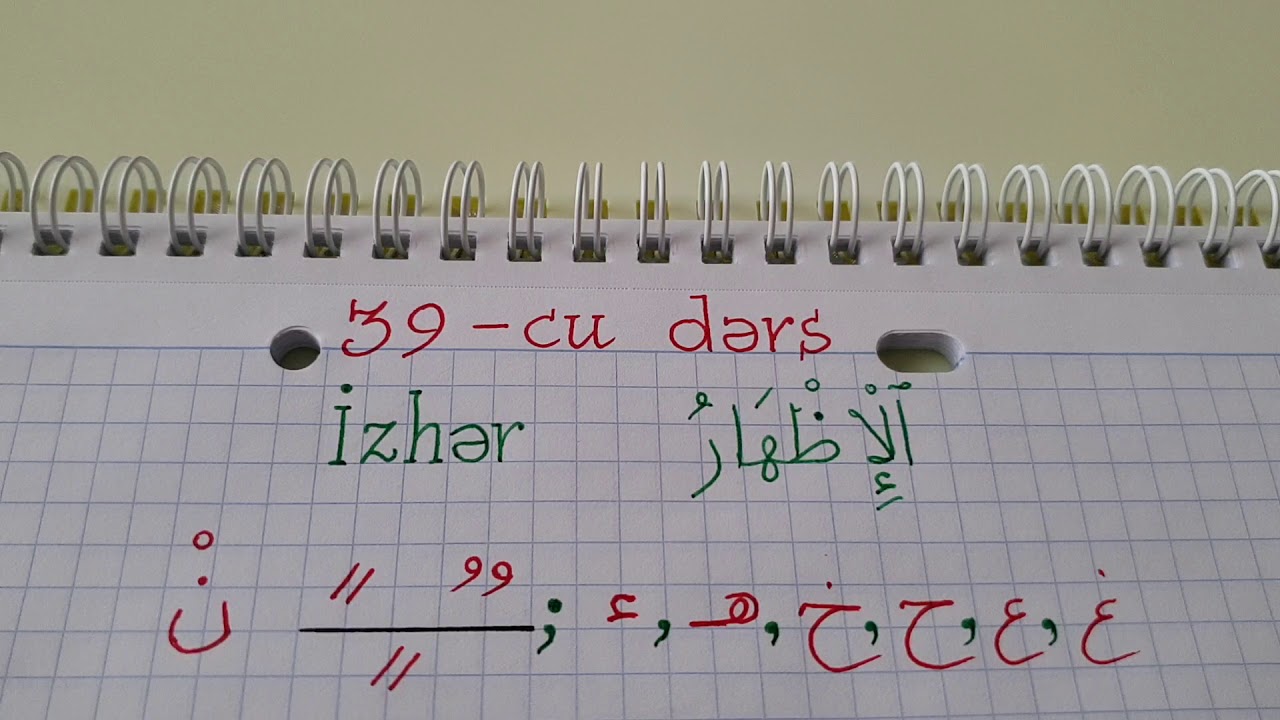 39-cu dərs
İzhər اَلْإِظْهَارُ
نْ ـًـٍـٌ ; ء , هـ , خ , ح , ع , غ